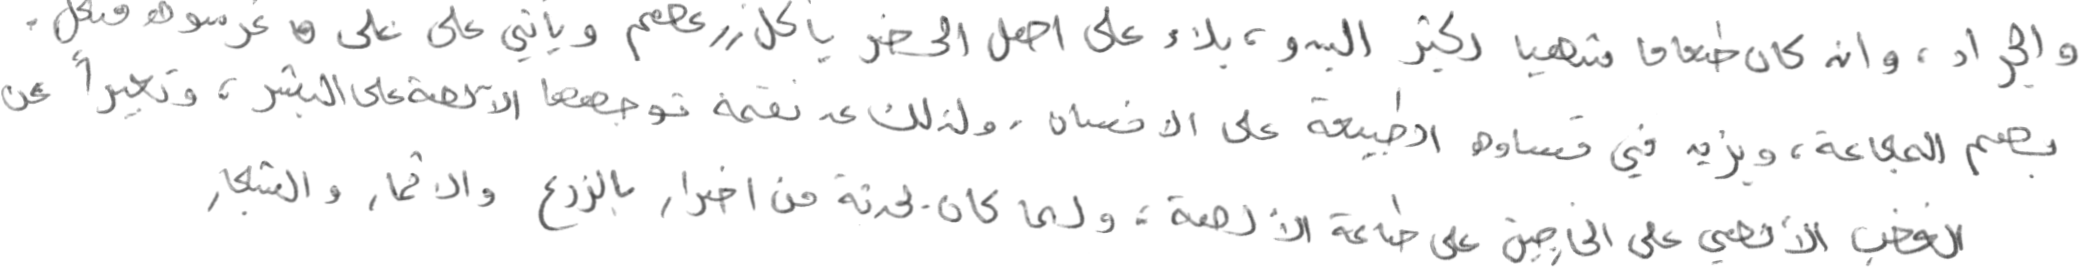 والجراد، وان كان طعاما شهيا لكثير البدو، بلاء على اهل الحضر يأكل زرعهم ويأتي على على ما غرسوه فيحل
بهم المجاعة، ويزيد في قساوه الطبيعة على الانسان. ولذلك عد نقمة توجهها الآلهة على البشر، وتعبيراً عن
الغضب الألهي على الخارجين على طاعة الألهة، ولما كان يحدثة من اضرار بالزرع والاثمار والاشجار